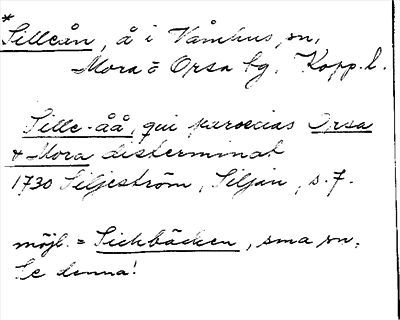 *Silleån, å i Våmhus, sn,
Mora o Orsa tg, Kopp. l.
Sille-åå, qui paroecias Orsa
& Mora disterminat
1730 Siljeström, Siljan, s. 7.
möjl. = Sickbäcken, sma sn,
Se denna!